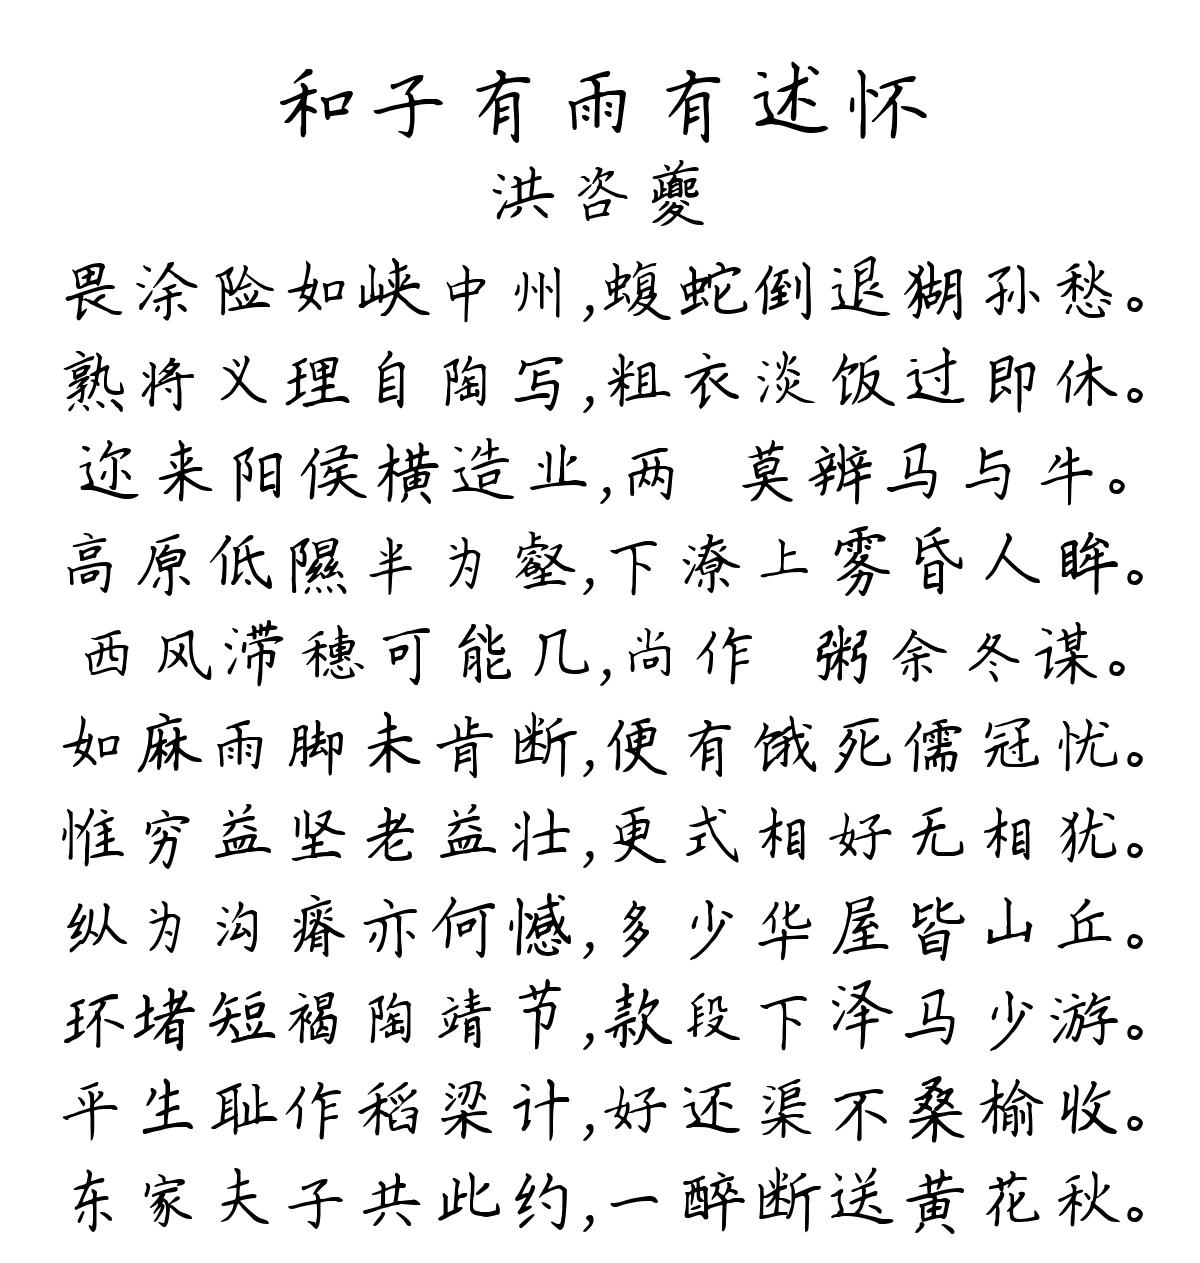 和子有雨有述怀
洪咨夔
畏涂险如峡中州,蝮蛇倒退猢孙愁。
熟将义理自陶写,粗衣淡饭过即休。
迩来阳侯横造业,两 莫辨马与牛。
高原低隰半为壑,下潦上雾昏人眸。
西风滞穗可能几,尚作 粥余冬谋。
如麻雨脚未肯断,便有饿死儒冠忧。
惟穷益坚老益壮,更式相好无相犹。
纵为沟瘠亦何憾,多少华屋皆山丘。
环堵短褐陶靖节,款段下泽马少游。
平生耻作稻梁计,好还渠不桑榆收。
东家夫子共此约,一醉断送黄花秋。